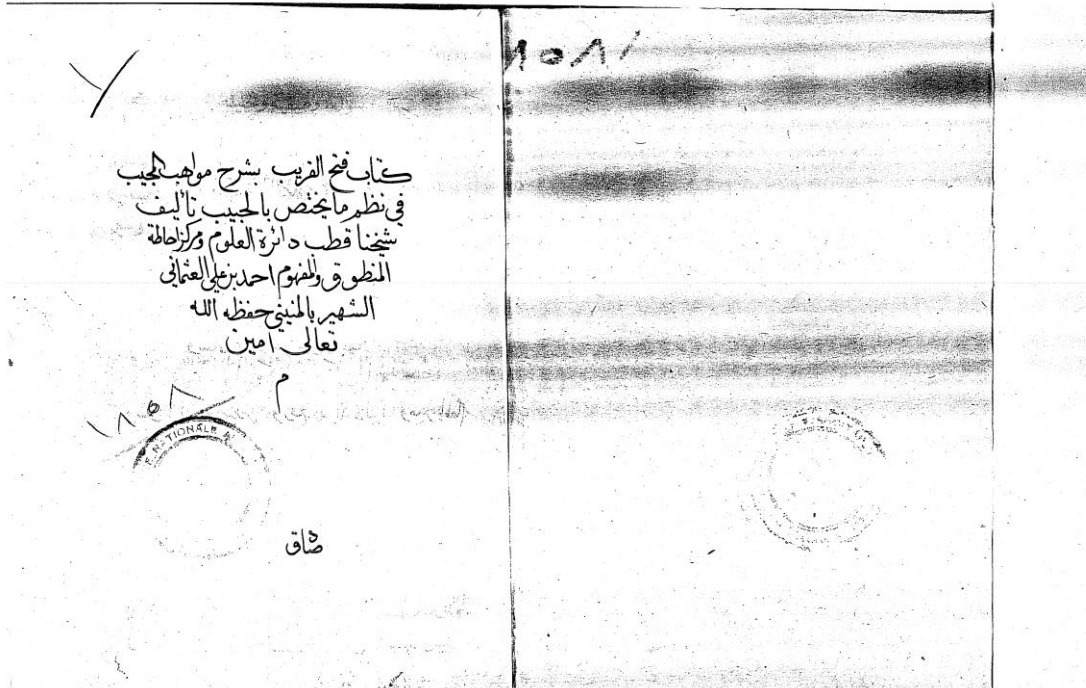 ١٥٨١
كتاب فتح القريب بشرح مواهب المجيب
في نظم ما يختص بالحبيب تاليف
شيخنا قطب دائرة العلوم ومركز احاطة
المنطوق والمفهوم احمد بن علي العثماني
الشهير بالمنيني حفظه الله
تعالى امين
م
١٨٥٨
E NATIONALE A